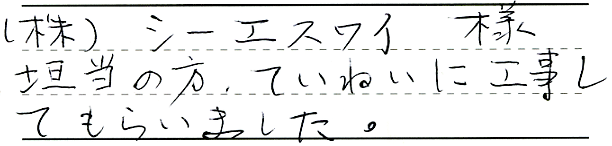 (株) シーエスワイ 様
担当の方、ていねいに工事し
てもらいました。